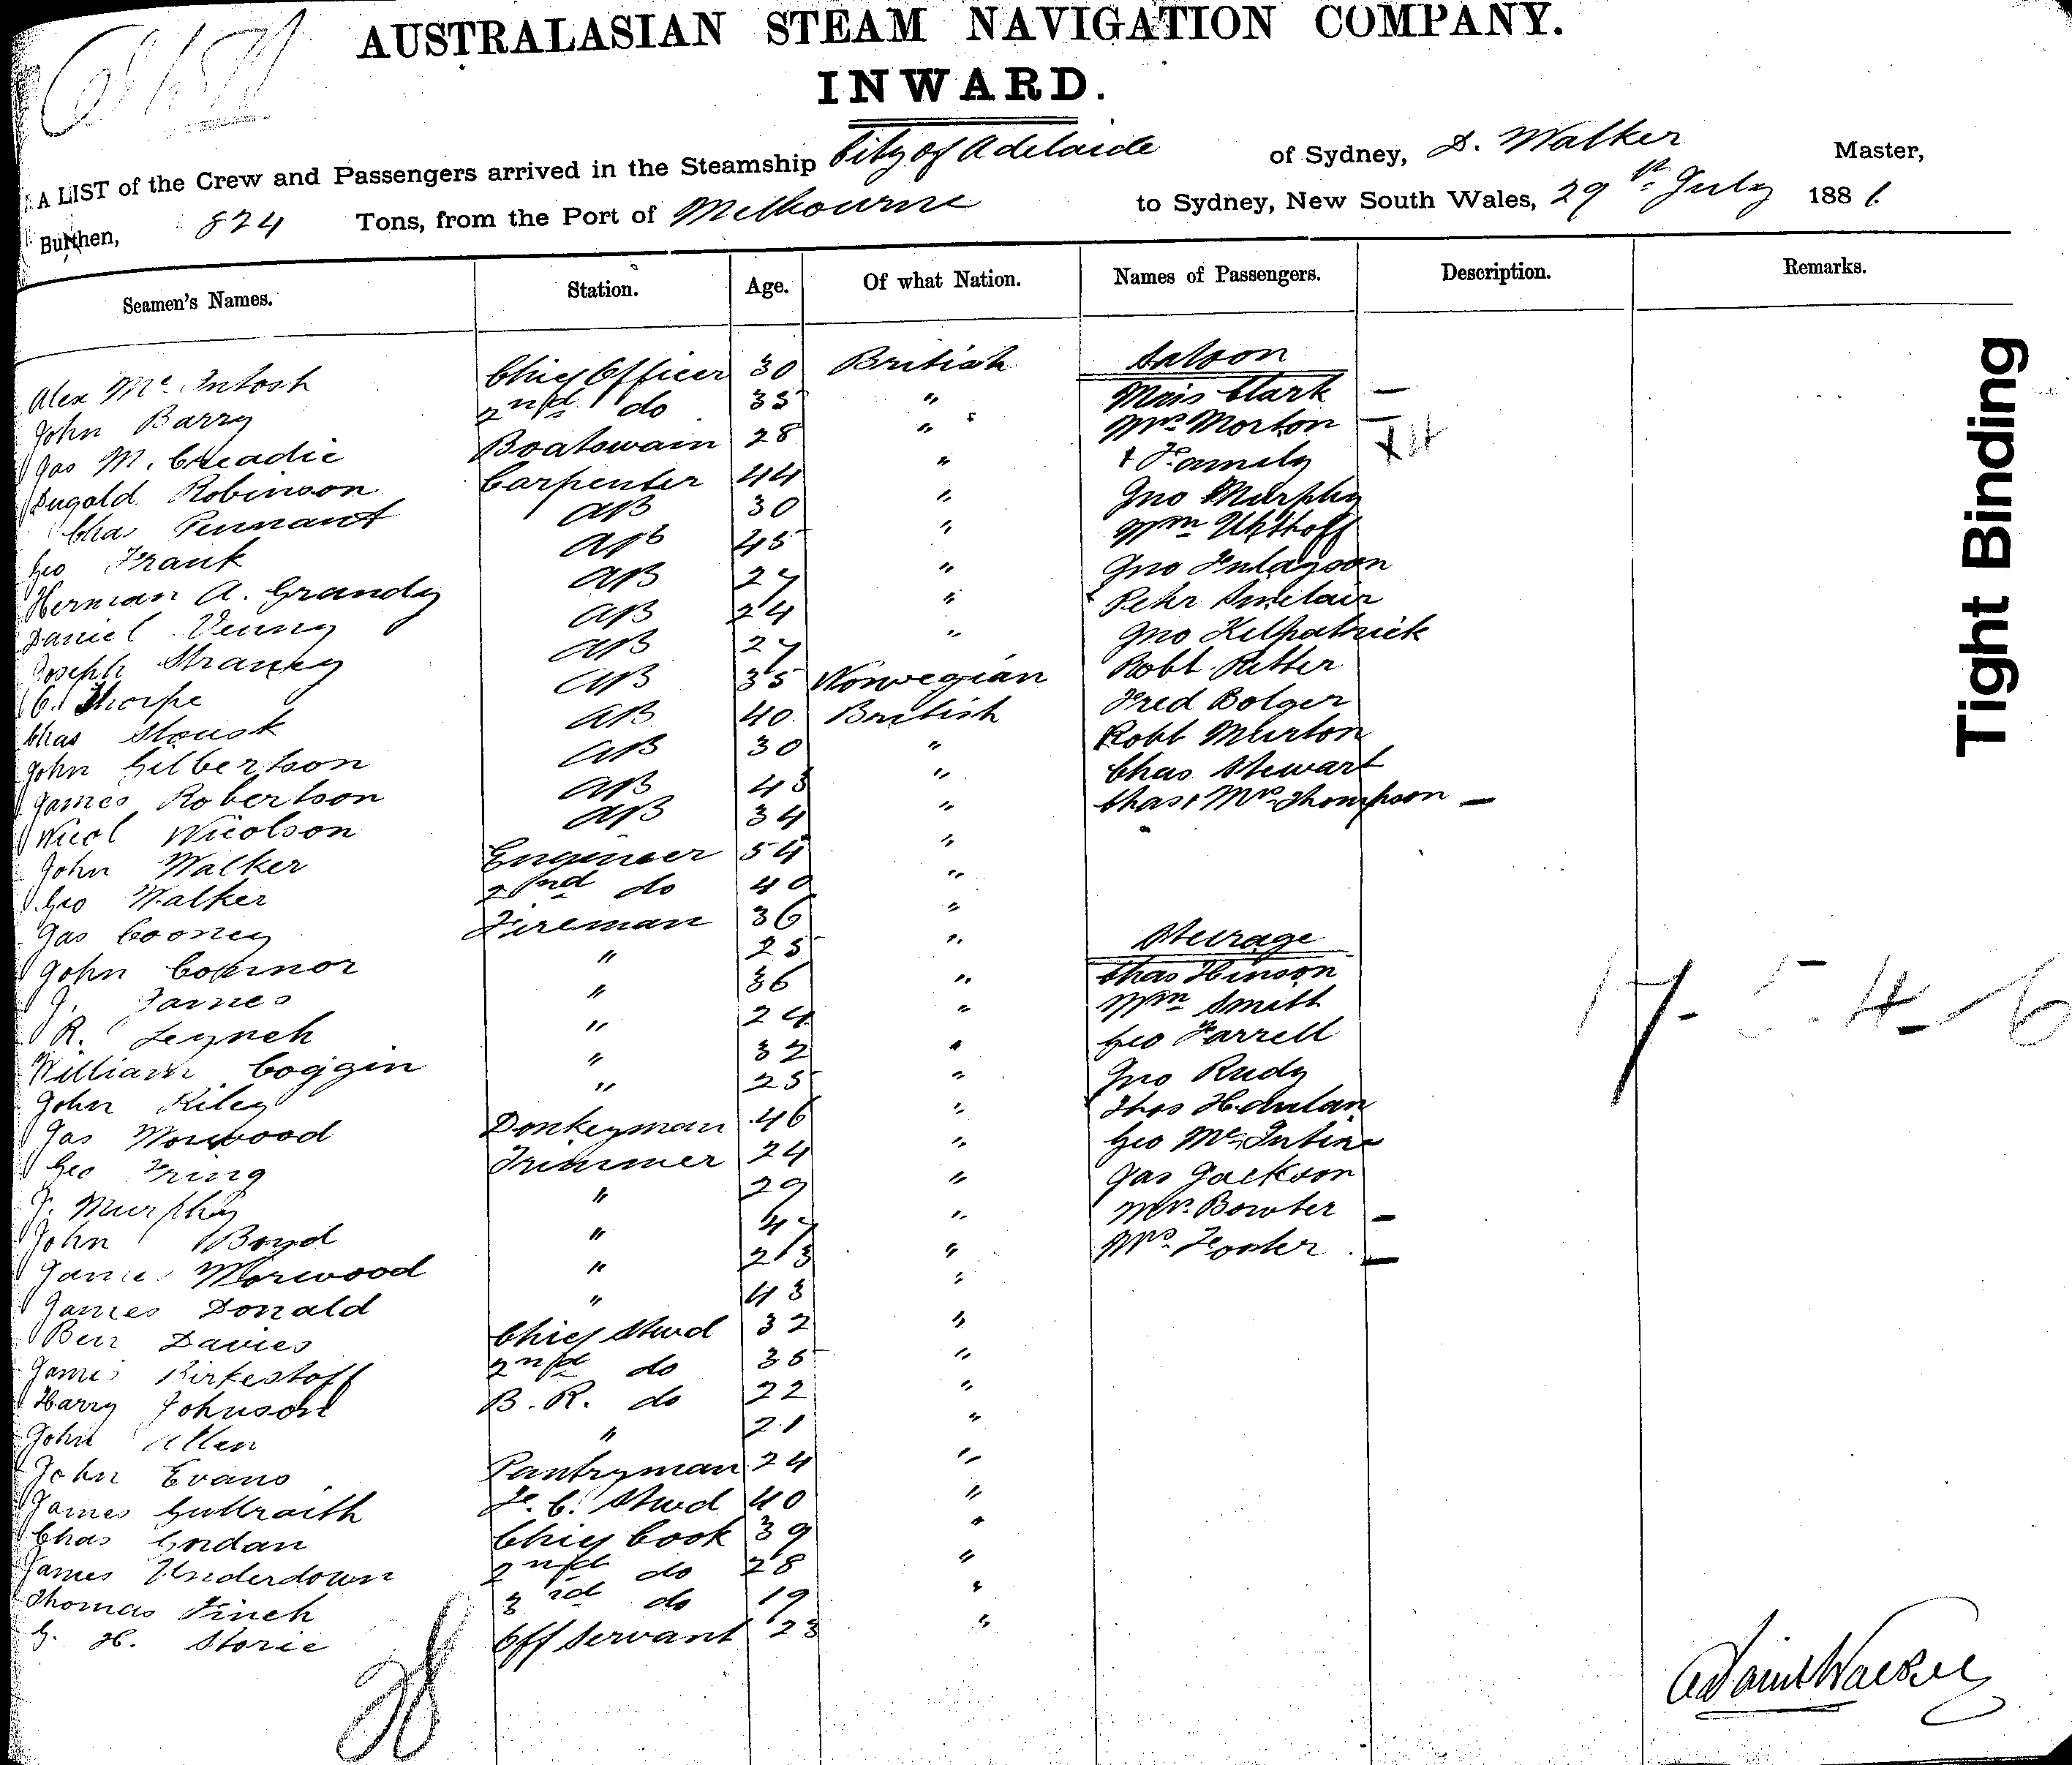 AUSTRALASIAN STEAM NAVIGATION COMPANY.
INWARD.
A LIST of the Crew and Passengers arrived in the Steamship City of Adelaide of Sydney, D. Walker Master,
Burthen, 824 Tons, from the Port of Melbourne to Sydney, New South Wales, 29th July 1881
Seamen's Names. Station. Age. Of what Nation. Names of Passengers. Description. Remarks.
Saloon
Alex Mc Intosh Chief Officer 30 British Miss Clark —
John Barry 2nd do 35 " Mrs Morton —
Jas M. Creadie Boatswain 28 " + Family
Dugald Robinson Carpenter 44 " Jno Murphy
Chas Pennant AB 30 " Wm Uhthoff
Geo Frank AB 45 " Jno Finlayson
Herman A. Grandy AB 27 " Peter Sinclair
Daniel Venny AB 24 " Jno Kilpatrick
Joseph Straney AB 27 " Robt Ritter
C. Thorpe AB 35 Norwegian Fred Bolger
Chas Stousk AB 40 British Robt Murton
John Gilbertson AB 30 " Chas Stewart
James Robertson AB 43 " Chas + Mrs Thompson —
Nicol Nicolson AB 34 "
John Walker Engineer 54 "
Geo Walker 2nd do 40 "
Jas Cooney Fireman 36 "
Steerage
John Connor " 25 " Chas Hinson
J. James " 36 " Wm Smith
R. Lynch " 24 " Geo Farrell
William Coggin " 32 " Jno Rudy
John Riley " 25 " Thos Handlan
Jas Morwood Donkeyman 46 " Geo Mc Intire
Geo Fring Trimmer 24 " Jas Jackson
J. Murphy " 29 " Mrs Bowter —
John Boyd " 47 " Mrs Foster —
James Morwood " 23 "
James Donald " 43 "
Ben Davies Chief Stwd 32 "
James Kirkestoff 2nd do 35 "
Harry Johnson B. R. do 22 "
John Allen " 21 "
John Evans Pantryman 24 "
James Gullraith F. C. Stwd 40 "
Chas Gordan Chief Cook 39 "
James Underdown 2nd do 28 "
Thomas Finch 3rd do 19 "
G. H. Storie Off Servant 23 "
38
Tight Binding